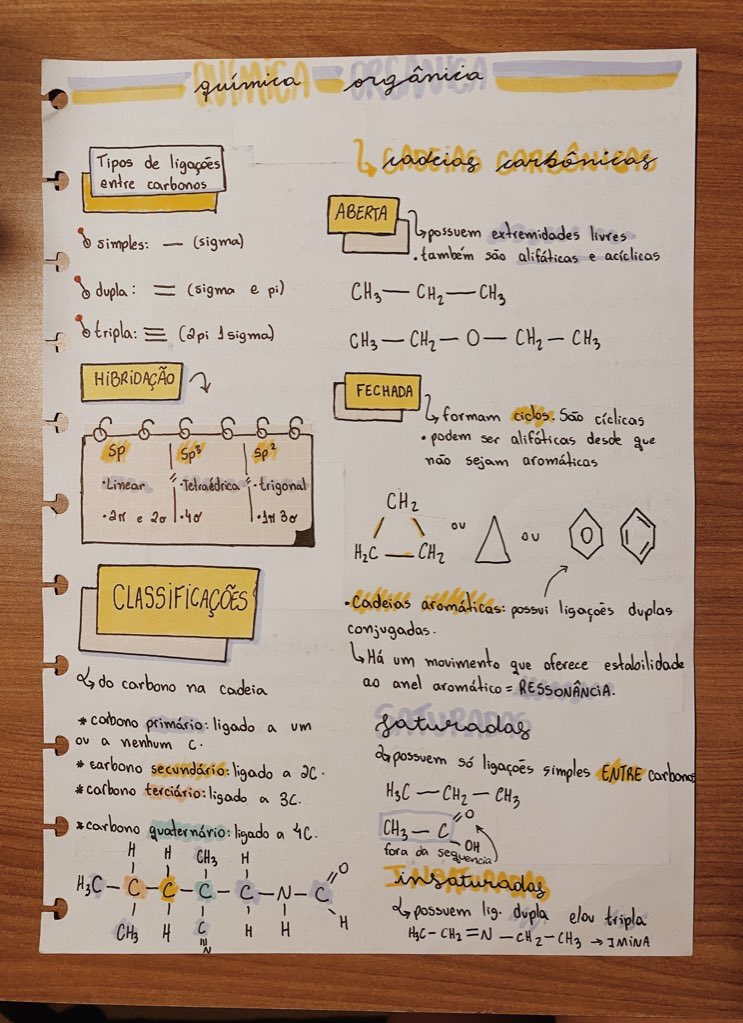 química orgânica
Tipos de ligações
entre carbonos
simples: — (sigma)
dupla: = (sigma e pi)
tripla: ≡ (2pi 1sigma)
HIBRIDAÇÃO
Sp Sp³ Sp²
•Linear •Tetraédrica •trigonal
•2π e 2σ •4σ •1π 3σ
CLASSIFICAÇÕES
↳ do carbono na cadeia
* carbono primário: ligado a um
ou a nenhum C.
* carbono secundário: ligado a 2C.
* carbono terciário: ligado a 3C.
* carbono quaternário: ligado a 4C.
H H CH₃ H O
H₃C — C — C — C — C — N — C
CH₃ H C H H H
≡
N
↳ cadeias carbônicas
CADEIAS CARBÔNICAS
ABERTA
↳ possuem extremidades livres
• também são alifáticas e acíclicas
CH₃ — CH₂ — CH₃
CH₃ — CH₂ — O — CH₂ — CH₃
FECHADA
↳ formam ciclos. São cíclicas
• podem ser alifáticas desde que
não sejam aromáticas
CH₂
H₂C — CH₂ ou ou
•Cadeias aromáticas: possui ligações duplas
conjugadas.
↳ Há um movimento que oferece estabilidade
ao anel aromático = RESSONÂNCIA.
SATURADAS
saturadas
↳ possuem só ligações simples ENTRE carbonos
H₃C — CH₂ — CH₃
CH₃ — C = O
OH
fora da sequencia
INSATURADAS
insaturadas
↳ possuem lig. dupla e/ou tripla
H₃C — CH₂ = N — CH₂ — CH₃ → IMINA